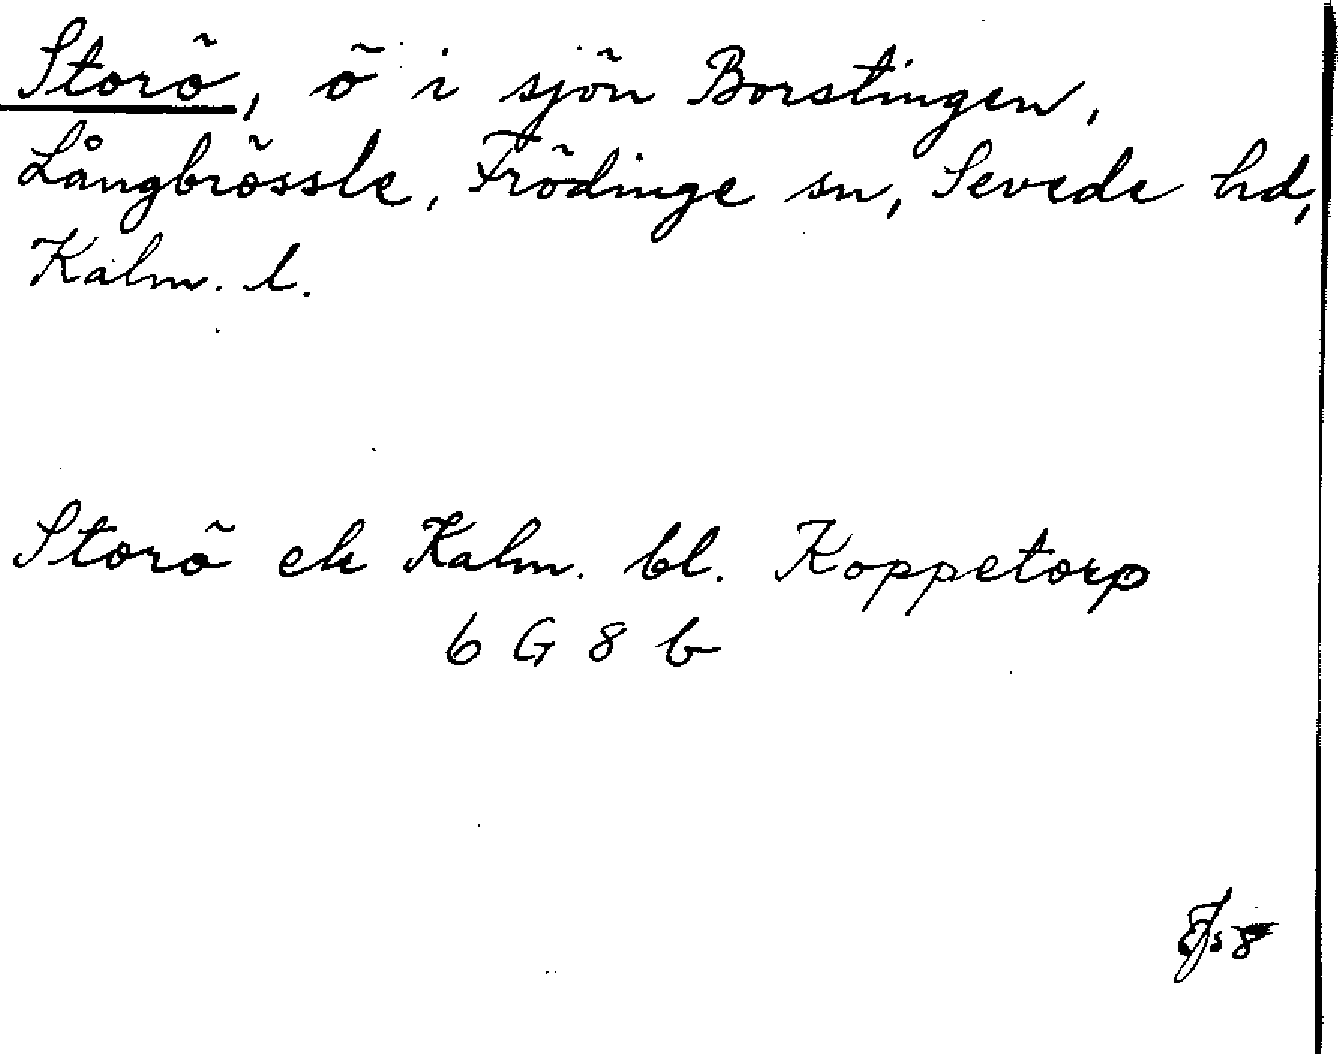 Storö, ö i sjön Borstingen,
Långbrössle, Frödinge sn, Sevede hd,
Kalm. l.
Storö ek Kalm. bl. Koppetorp
6 G 8 b